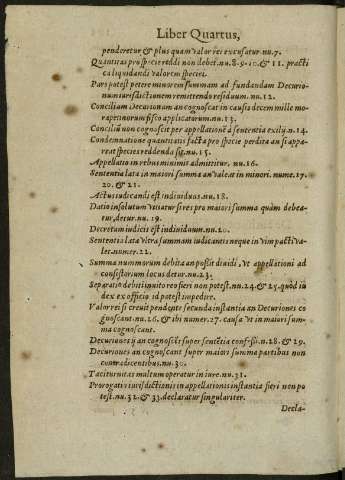 Liber Quartus,
penderetur & plus quam valor rei excusatur. nu. 7.
Quantitas pro specie reddi non debet. nu. 8. 9. 10. & 11. practi
ca liquidandi valorem speciei.
Pars potest petere minorem summam ad fundandam Decurio-
num iurisdictionem remittendo residuum. nu. 12.
Concilium Decurionum an cognoscat in causis decem mille mo-
rapetinorum fisco applicatorum. nu. 13.
Conciliũ non cognoscit per appellationẽ a sententia exilij. n. 14.
Condemnatione quantitatis facta pro specie perdita an si appa-
reat species reddenda sig. nu. 15.
Appellatio in rebus minimis admittitur, nu. 16.
Sententia lata in maiori summa an valeat in minori. nume. 17.
20. & 21.
Actus iudicandi est indiuiduus. nu. 18.
Datio insolutum vitiatur si res pro maiori summa quàm debea-
tur, detur. nu. 19.
Decretum iudicis est indiuiduum. nu. 20.
Sententia lata vltra summam iudicantis neque in vim pacti va-
let. numer. 22.
Summa nummorum debita an possit diuidi, vt appellationi ad
consistorium locus detur. nu. 23.
Separatio debiti inuito reo fieri non potest. nu. 24. & 25. quod iu
dex ex officio id potest impedire.
Valor rei si creuit pendente secunda instantia an Decuriones co
gnoscant. nu. 26. & ibi numer. 27. causa vt in maiori sum-
ma cognoscant.
Decuriones ij an cognoscãt super sentẽtia conf- n. 28. & 29.
Decuriones an cognoscant super maiori summa partibus non
contradicentibus. nu. 30.
Taciturnitas multum operatur in iure. nu. 31.
Prorogati iurisdictionis in appellationis instantia fieri non po
test. nu. 32. an & 33. declaratur singulariter.
Decla-